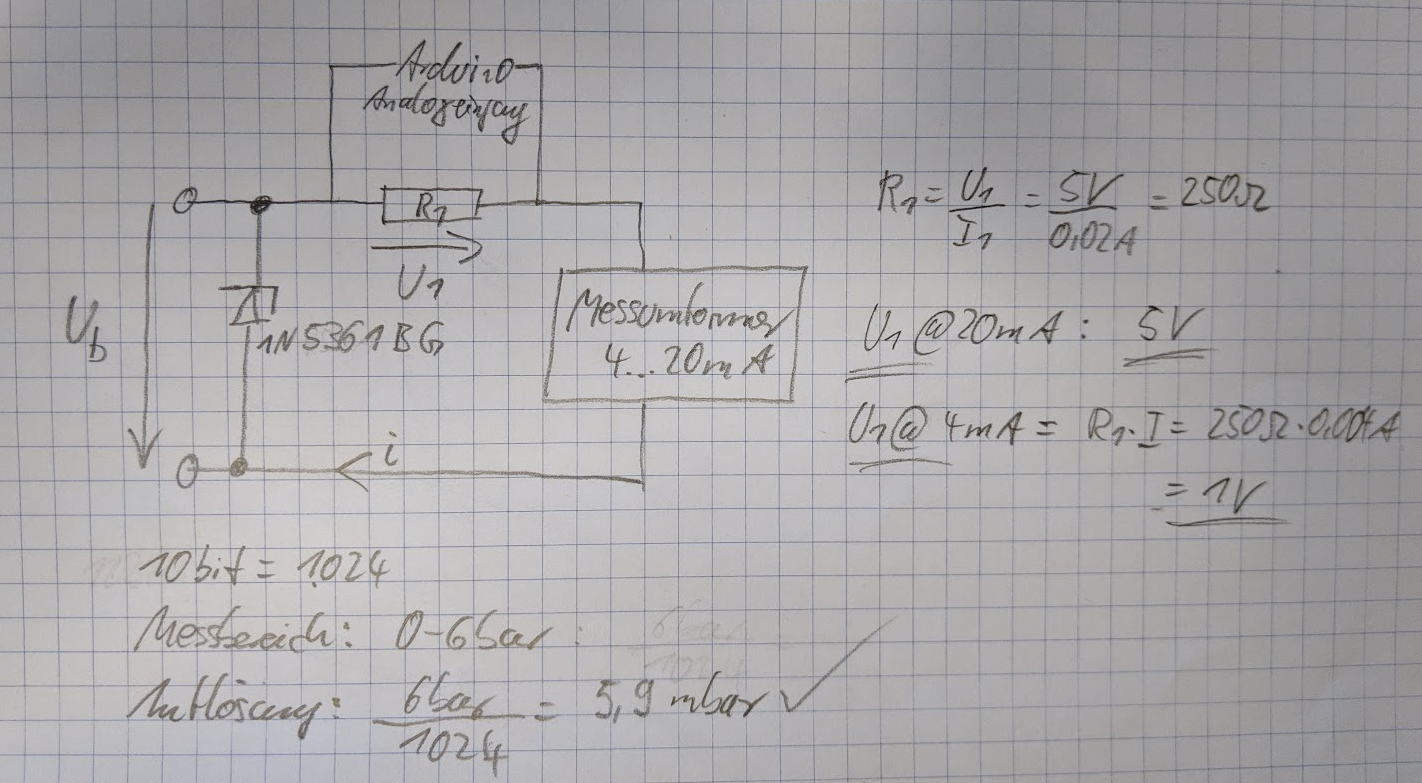 Arduino
Analogeingang
R1
U1
Ub
1N5361BG
Messumformer
4...20mA
i
R1 = U1 / I1 = 5V / 0,02A = 250Ω
U1 @ 20mA : 5V
U1 @ 4mA = R1 · I = 250Ω · 0,004A
= 1V
10bit = 1024
Messbereich: 0-6bar :
Auflösung: 6bar / 1024 = 5,9 mbar ✓